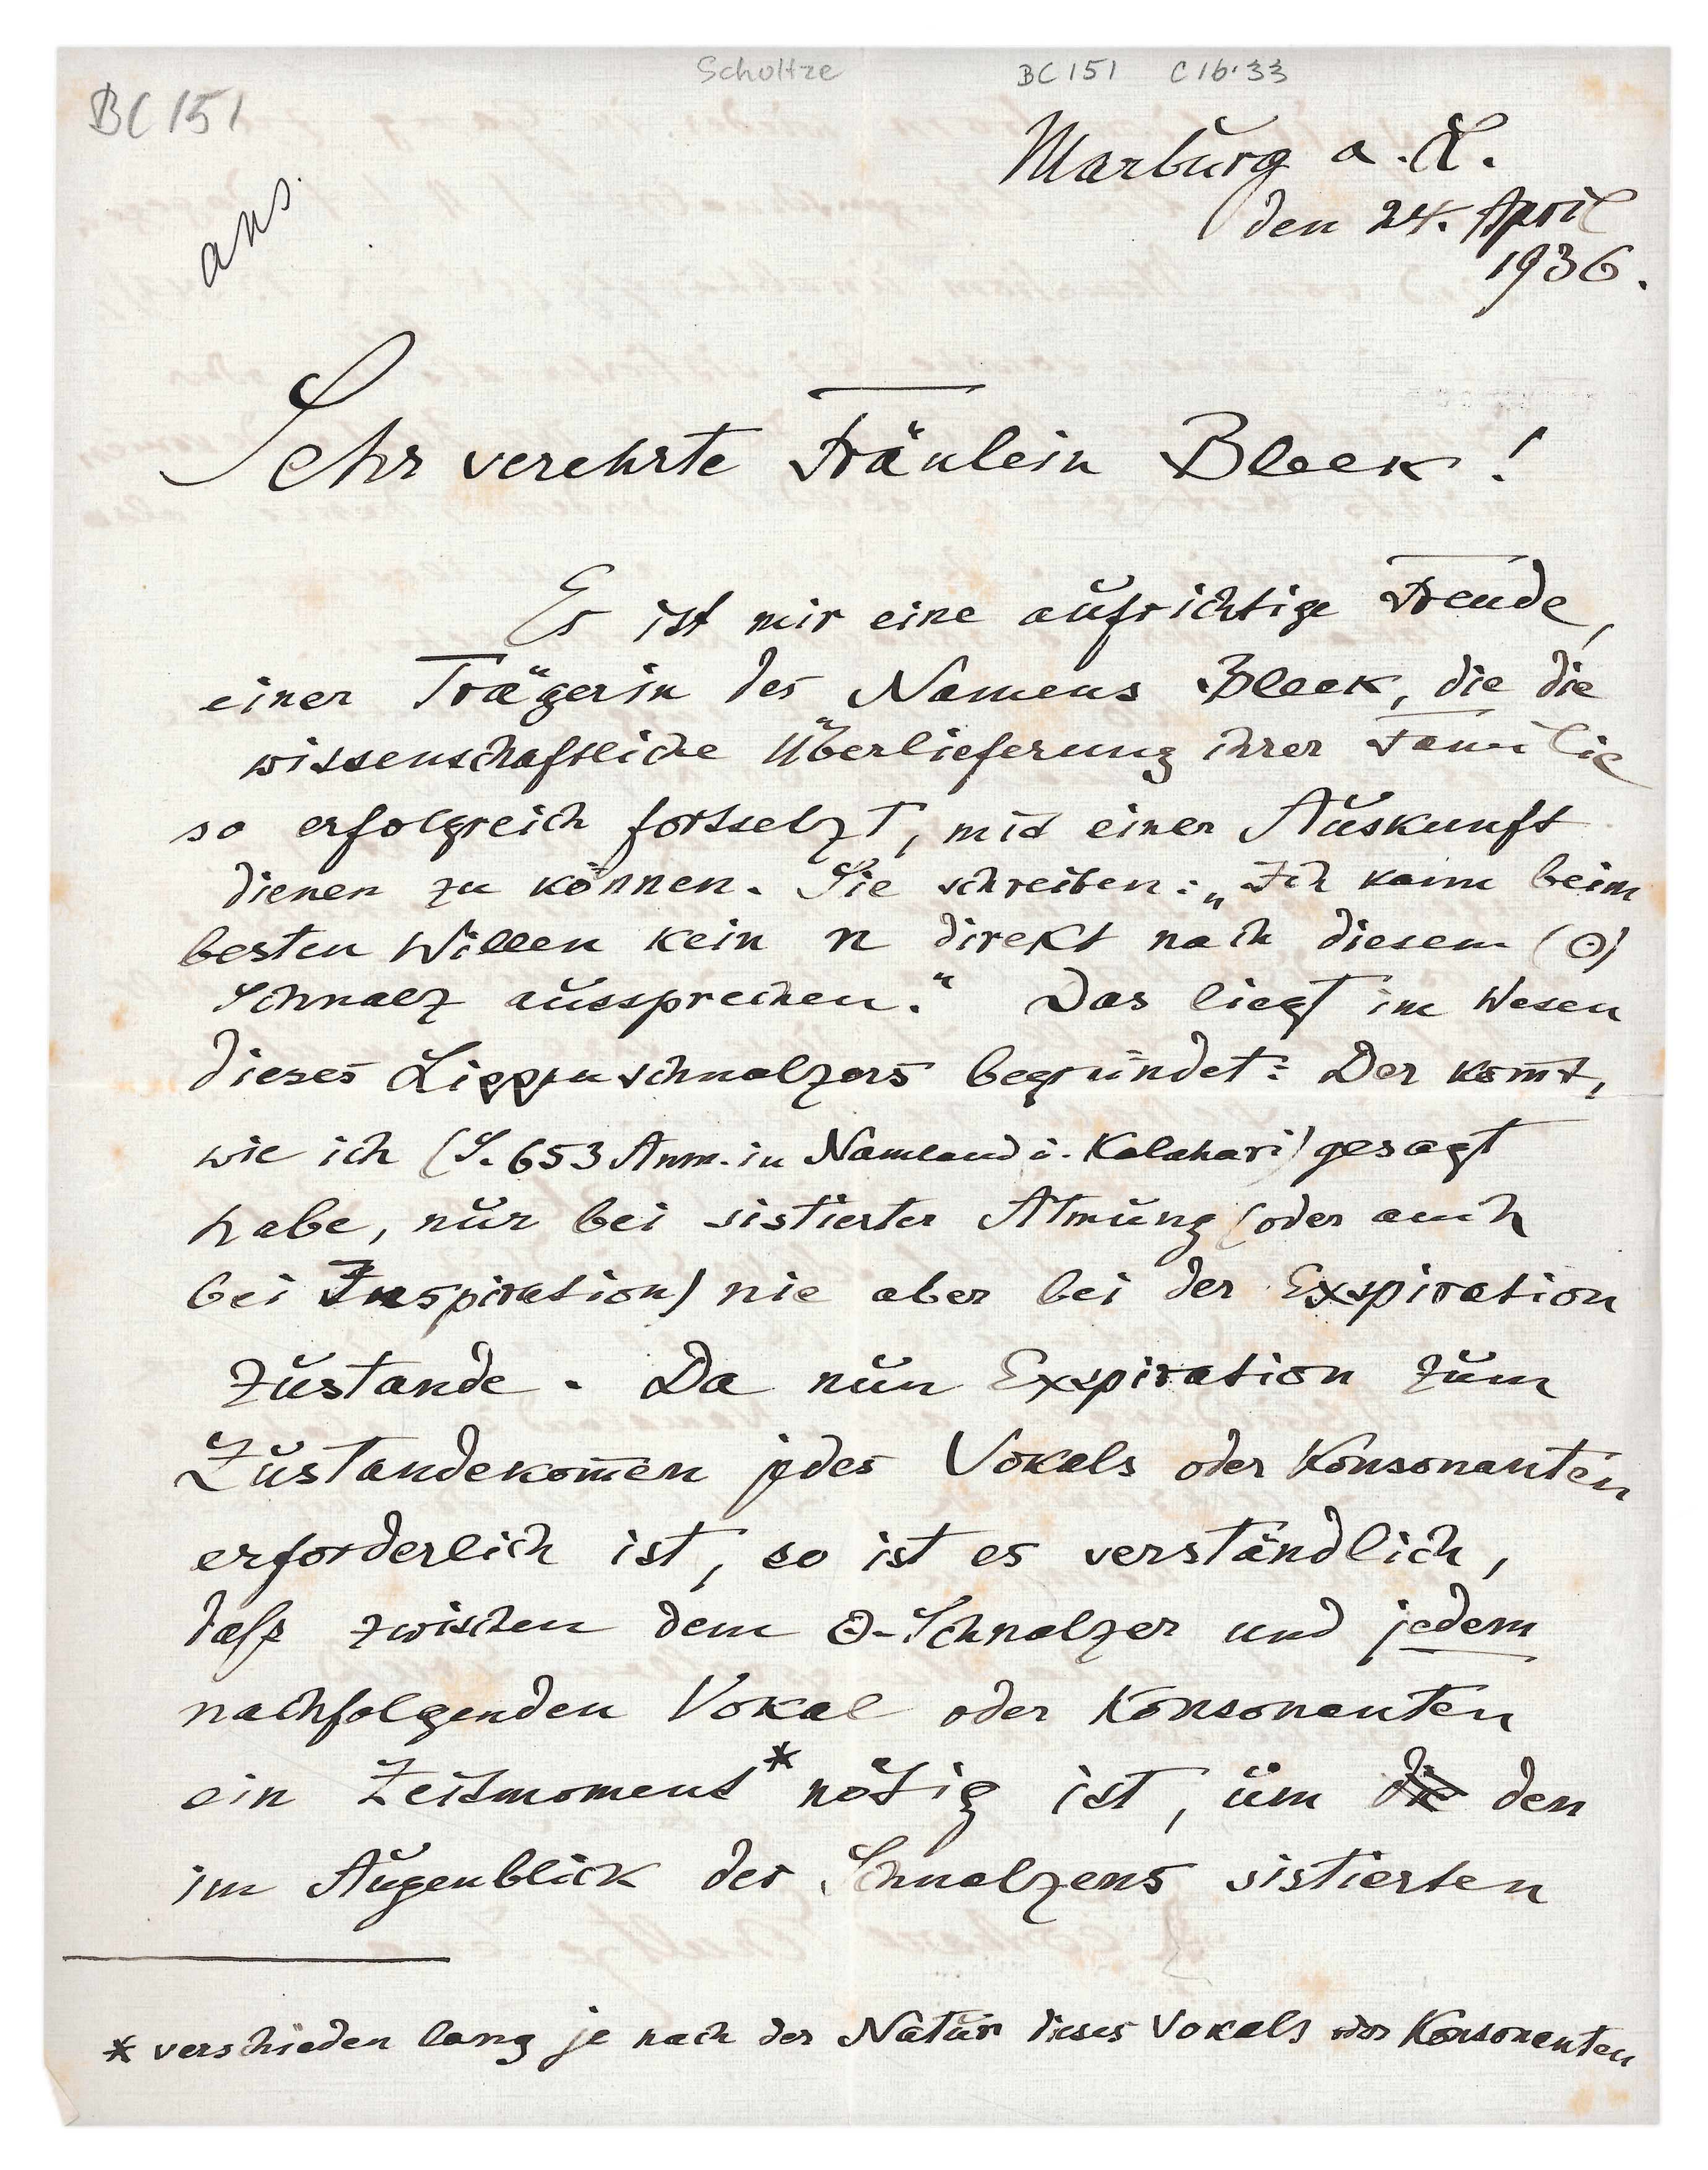 Scholtze BC 151 C16.33
BC 151
ans.
Marburg a. L.
den 24. April
1936.
Sehr verehrte Fräulein Bleek!
Es ist mir eine aufrichtige Freude,
einer Trägerin des Namens Bleek, die die
wissenschaftliche Überlieferung ihrer Familie
so erfolgreich fortsetzt, mit einer Auskunft
dienen zu können. Sie schreiben: „Ich kann beim
besten Willen kein n direkt nach diesem (ʘ)
Schnalz aussprechen.“ Das liegt im Wesen
dieses Lippenschnalzers begründet: Der kom̅t,
wie ich (S. 653 Anm. in Namaland u. Kalahari) gesagt
habe, nur bei sistierter Atmung (oder auch
bei Inspiration) nie aber bei der Exspiration
zustande. Da nun Exspiration zum
Zustandekom̅en jedes Vokals oder Konsonanten
erforderlich ist, so ist es verständlich,
daß zwischen dem ʘ-Schnalzer und jedem
nachfolgenden Vokal oder Konsonanten
ein Zeitmoment* nötig ist, um die den
im Augenblick des Schnalzens sistierten
* verschieden lang je nach der Natur dieses Vokals oder Konsonanten